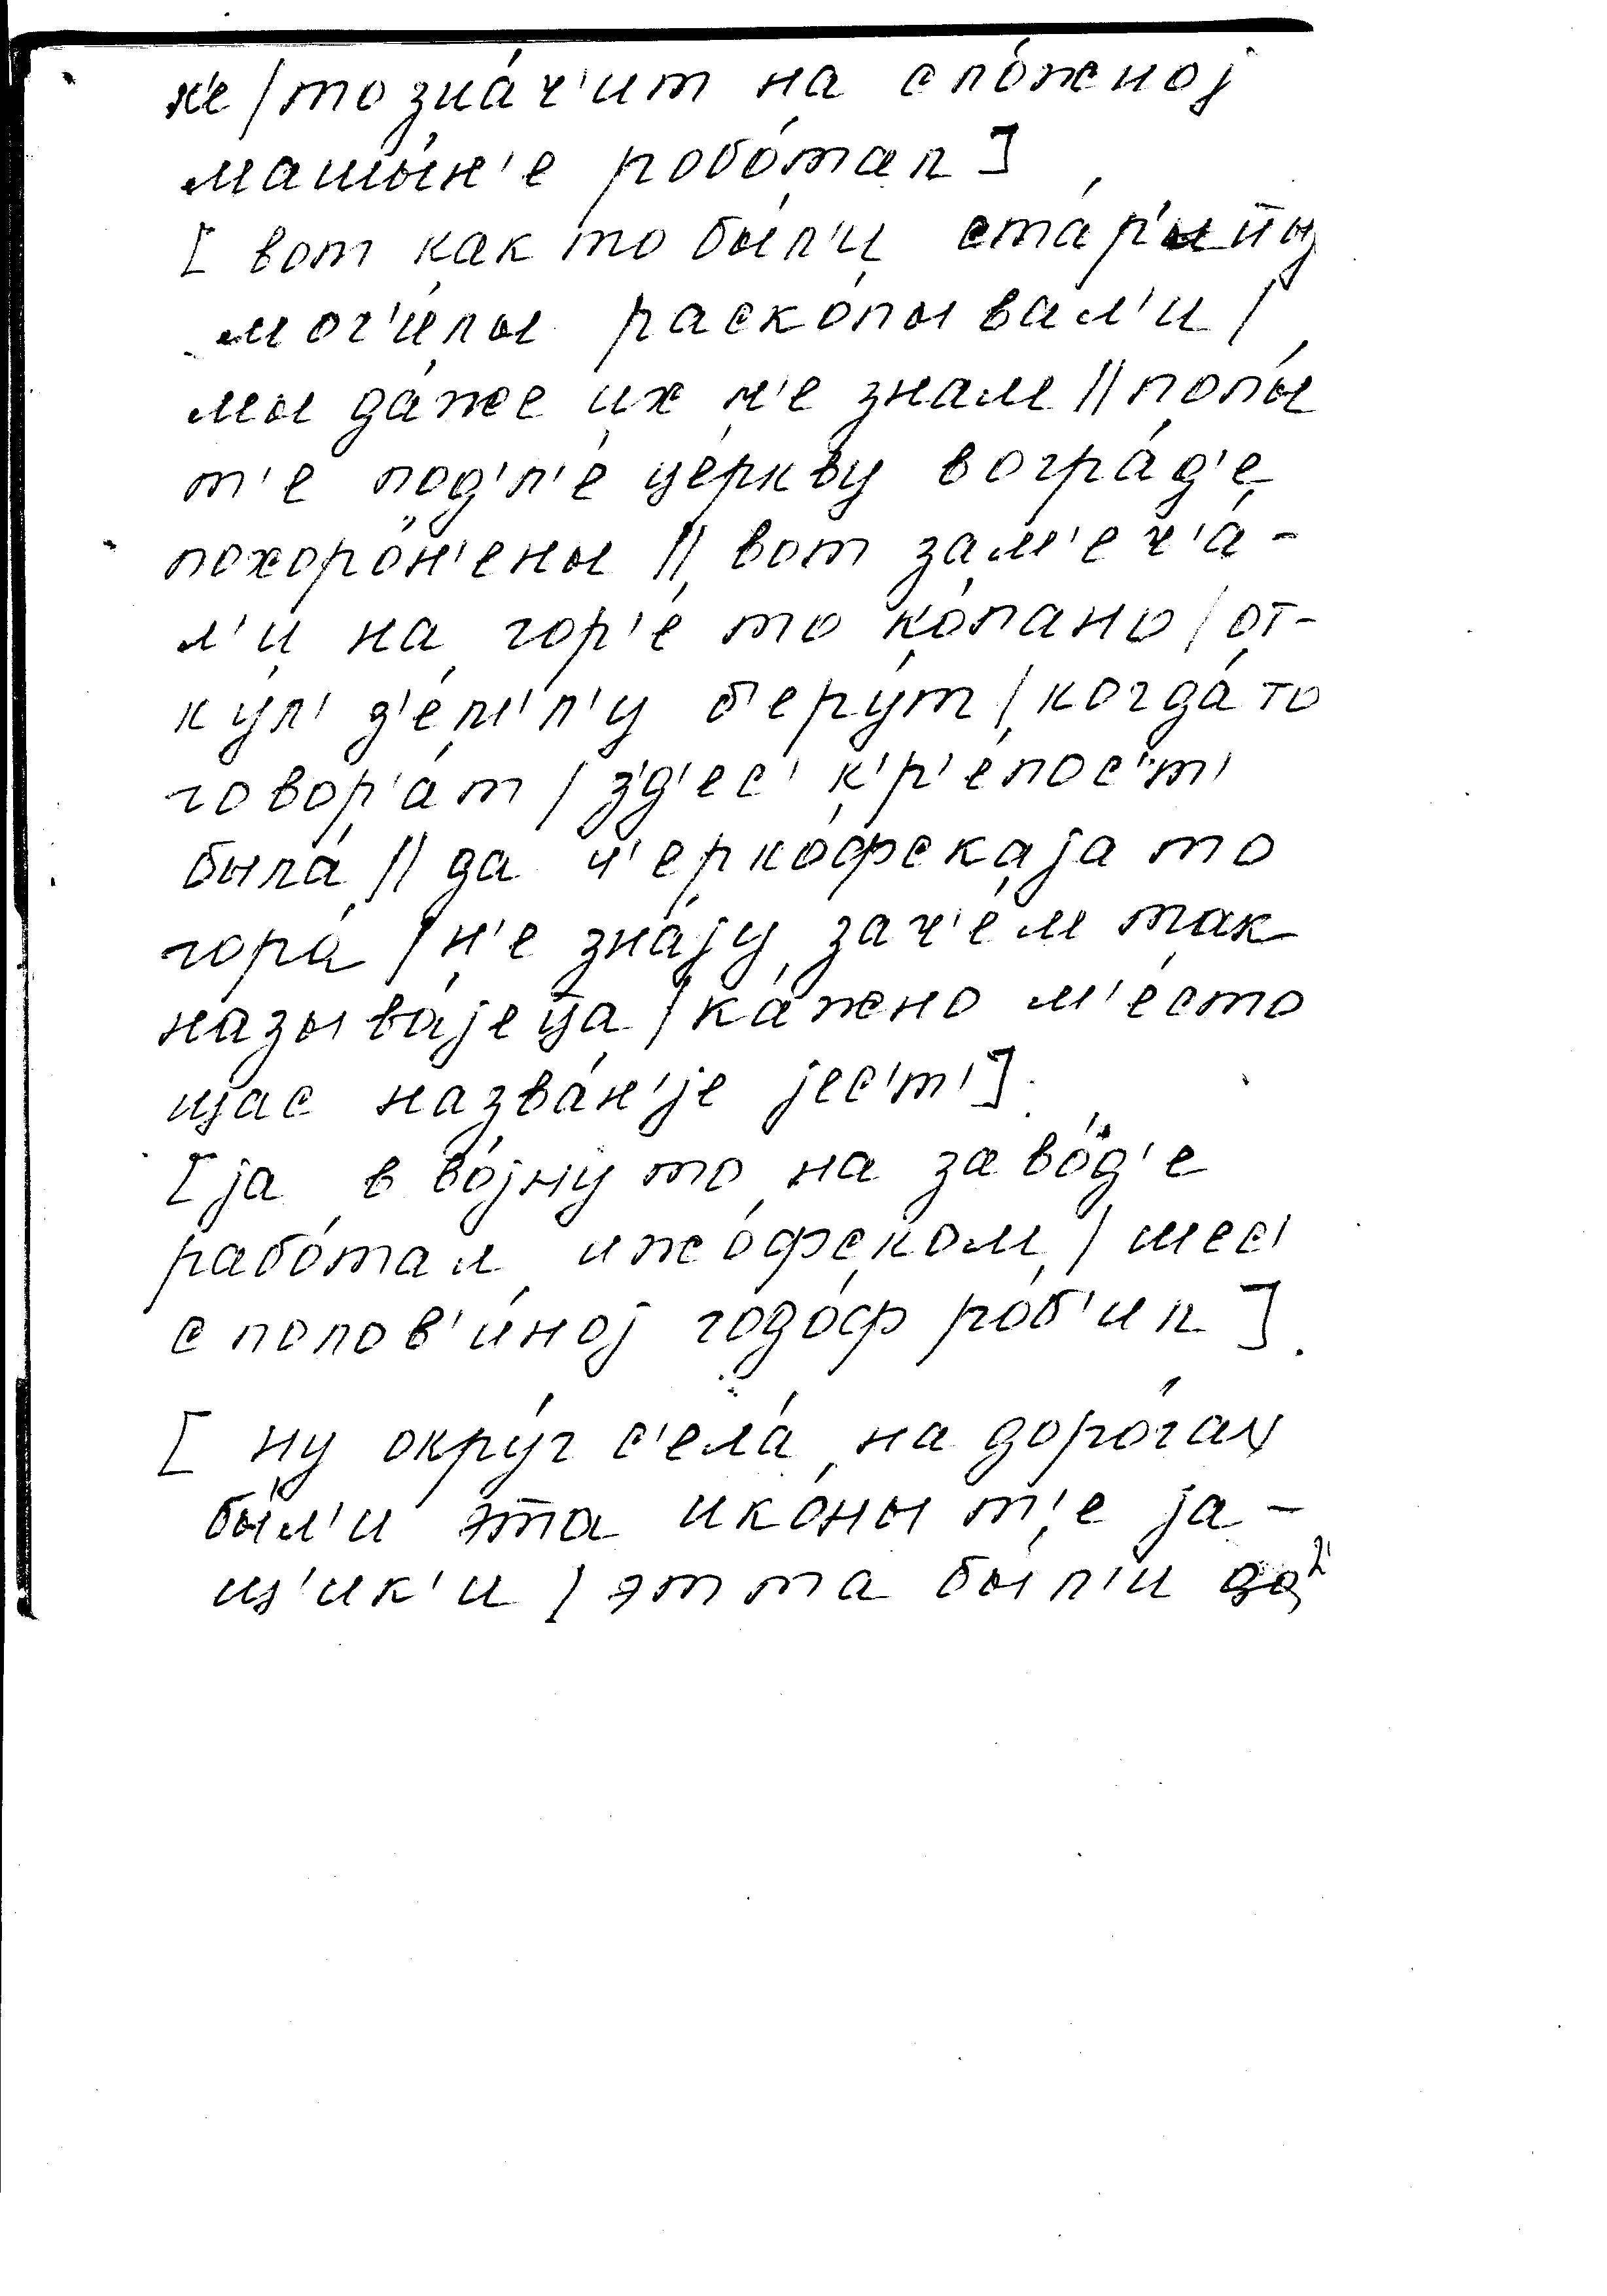 н'е / то зна́ч'ит на сло́жној
машы́н'е робо́тал ]
[ вот как то бы́л'и ста́р'инны
мог'и́лы раско́пывал'и /
мы да́же их н'е знам // попы́
т'е подл'е́ це́ркву в огра́д'е
похоро́н'ены // вот зам'еч'а́-
л'и на гор'е́ то ко́пано / от-
ку́л' з'е́мл'у б'еру́т / когда́ то
говор'а́т / з'д'ес' к'р'е́пос'т'
была́ // да ч'ерко́фскаја то
гора́ / н'е зна́ју зач'е́м так
называ́јеца / ка́жно м'е́сто
щас назва́н'је јес'т' ]
[ ја в војну́ то на заво́д'е
рабо́тал ижо́фском / шес'
с полов'и́ној годо́ф ро́б'ил ]
[ ну окру́г с'ела́ на доро́гах
бы́л'и эта ико́ны т'е ја-
щ'ик'и / этта бы́л'и